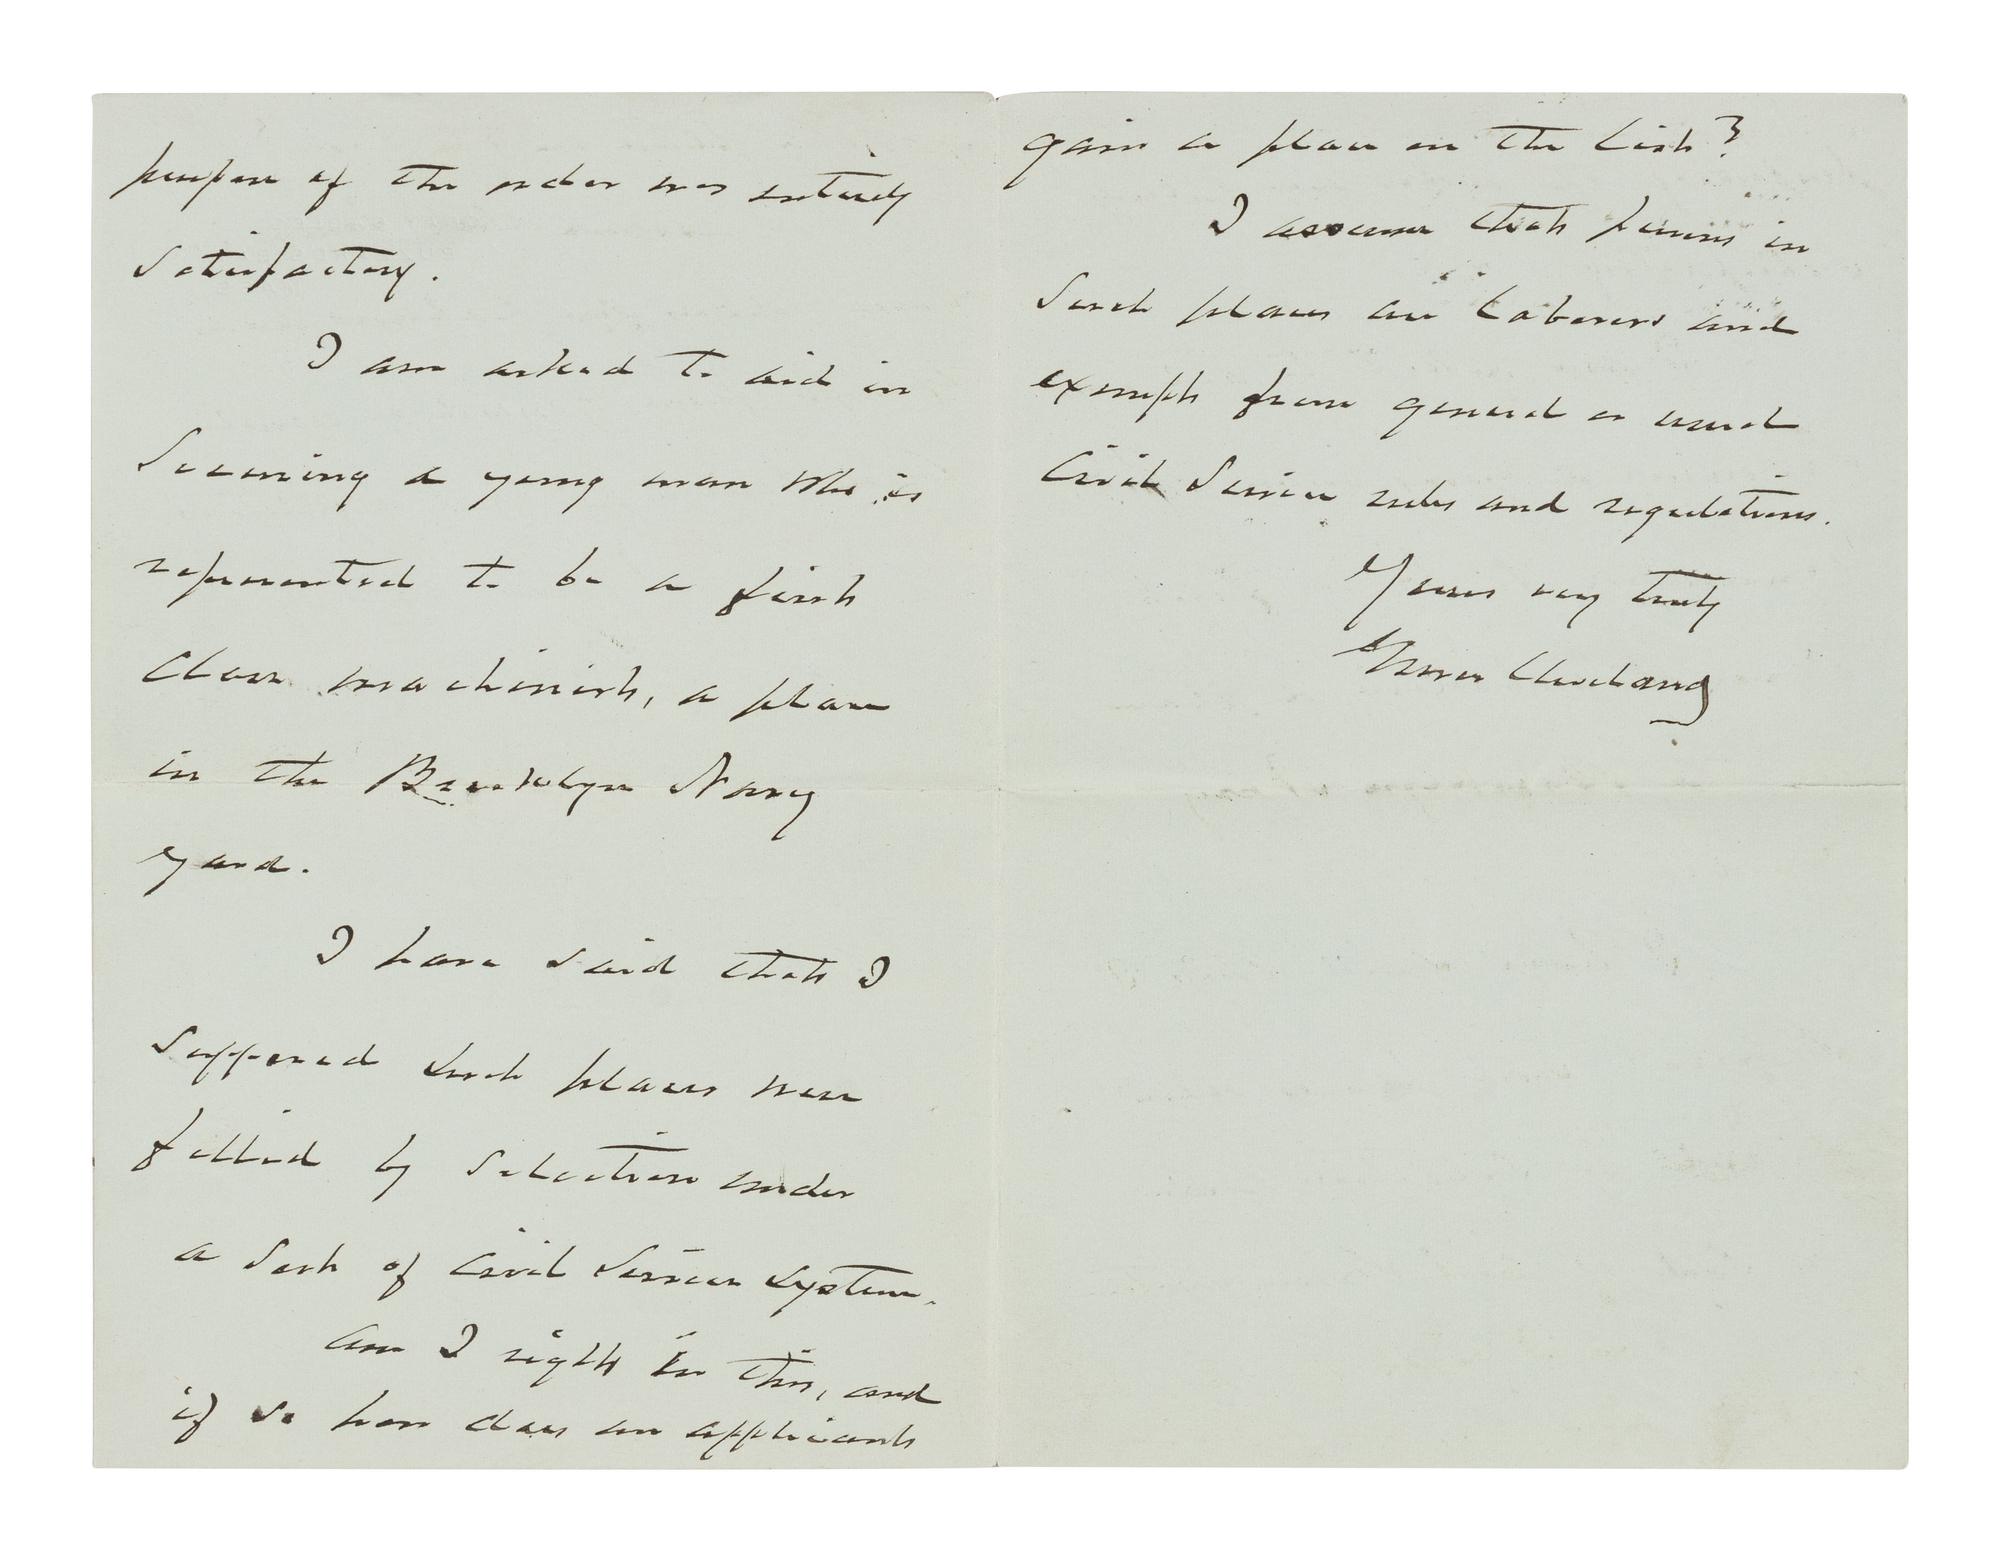 purpose of the order was entirely
satisfactory.
I am asked to aid in
securing a young man who is
represented to be a first
class machinist, a place
in the Brooklyn Navy
yard.
I have said that I
supposed such places were
filled by selection under
a sort of civil service system.
Am I right in this, and
if so how does an applicant
gain a place on the list?
I assume that persons in
such places are laborers and
exempt from general or usual
Civil Service rules and regulations.
Yours very truly
Grover Cleveland